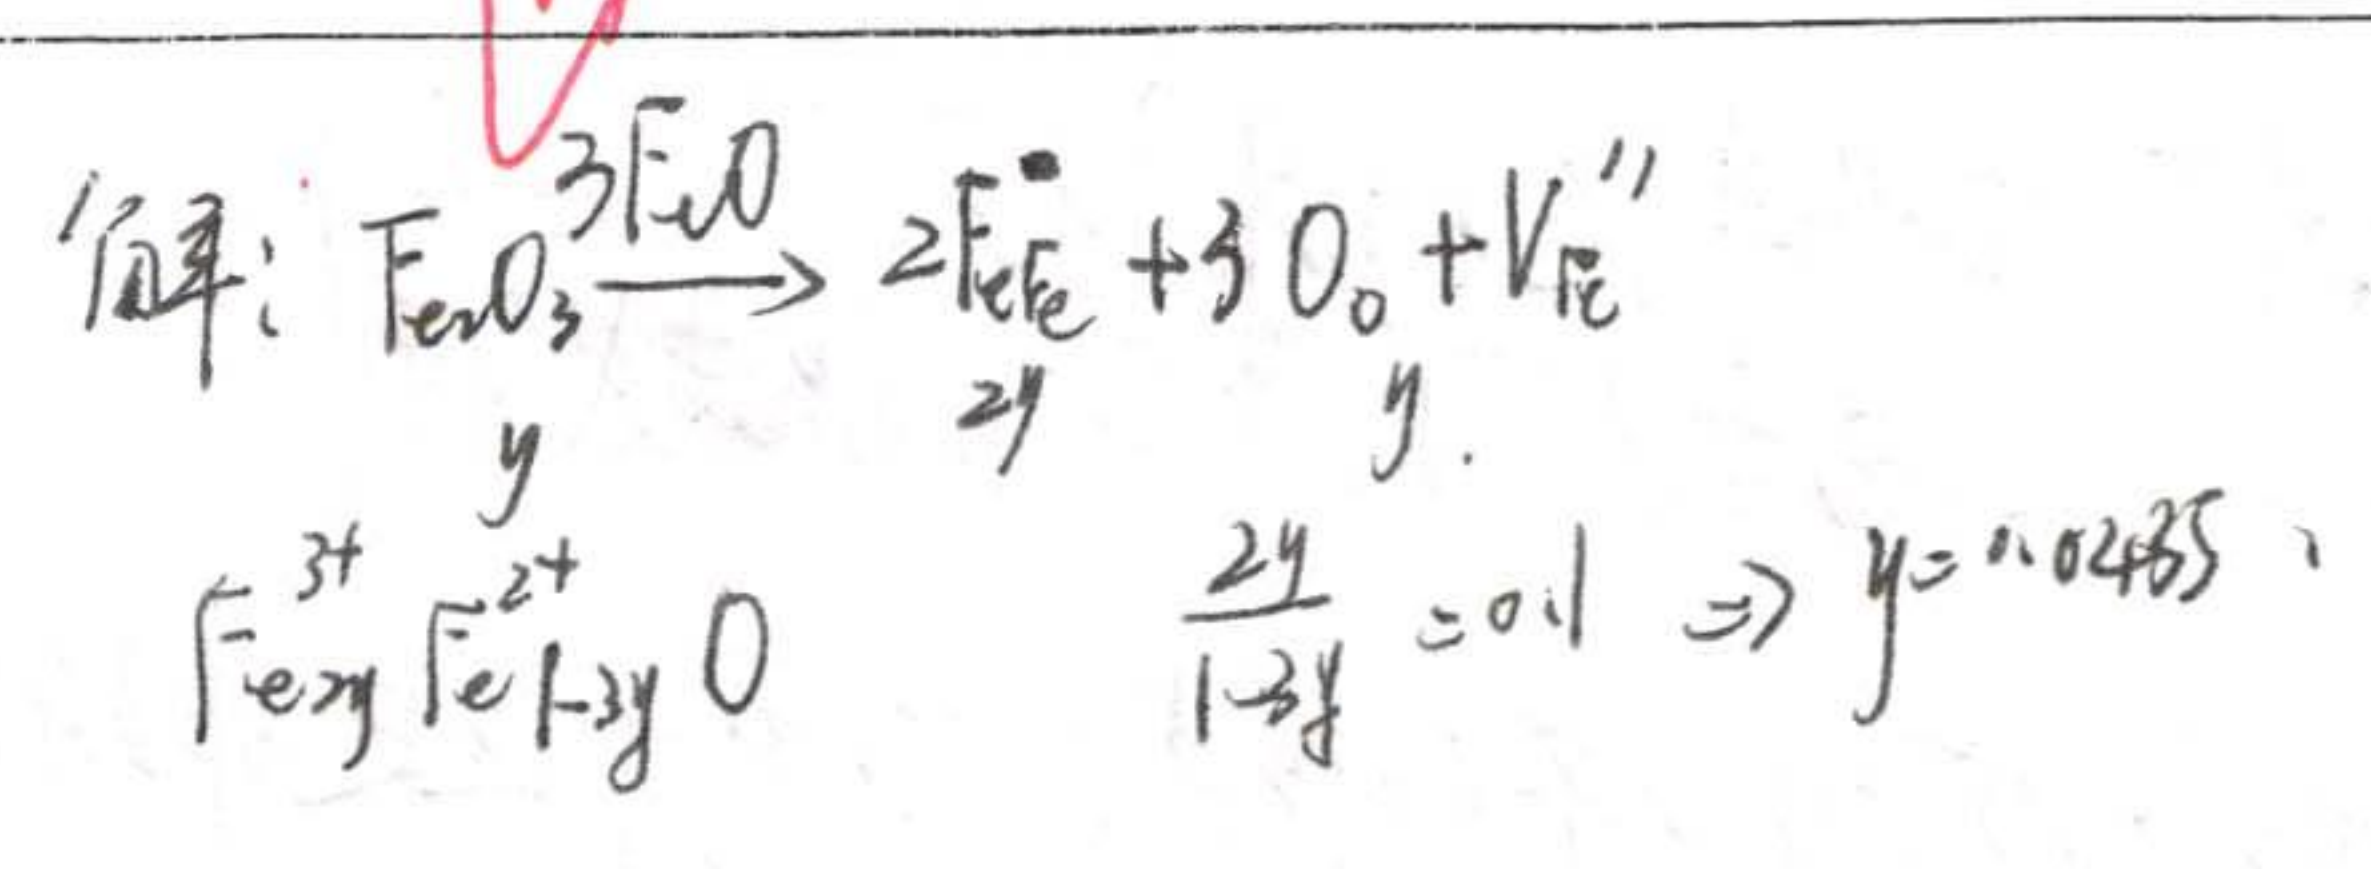 解: Fe₂O₃ —3FeO→ 2Fe_Fe^• + 3O_O + V_Fe''
y 2y y.
Fe³⁺₂y Fe²⁺₁₋₃y O 2y/(1-3y) = 0.1 ⇒ y = 0.0435